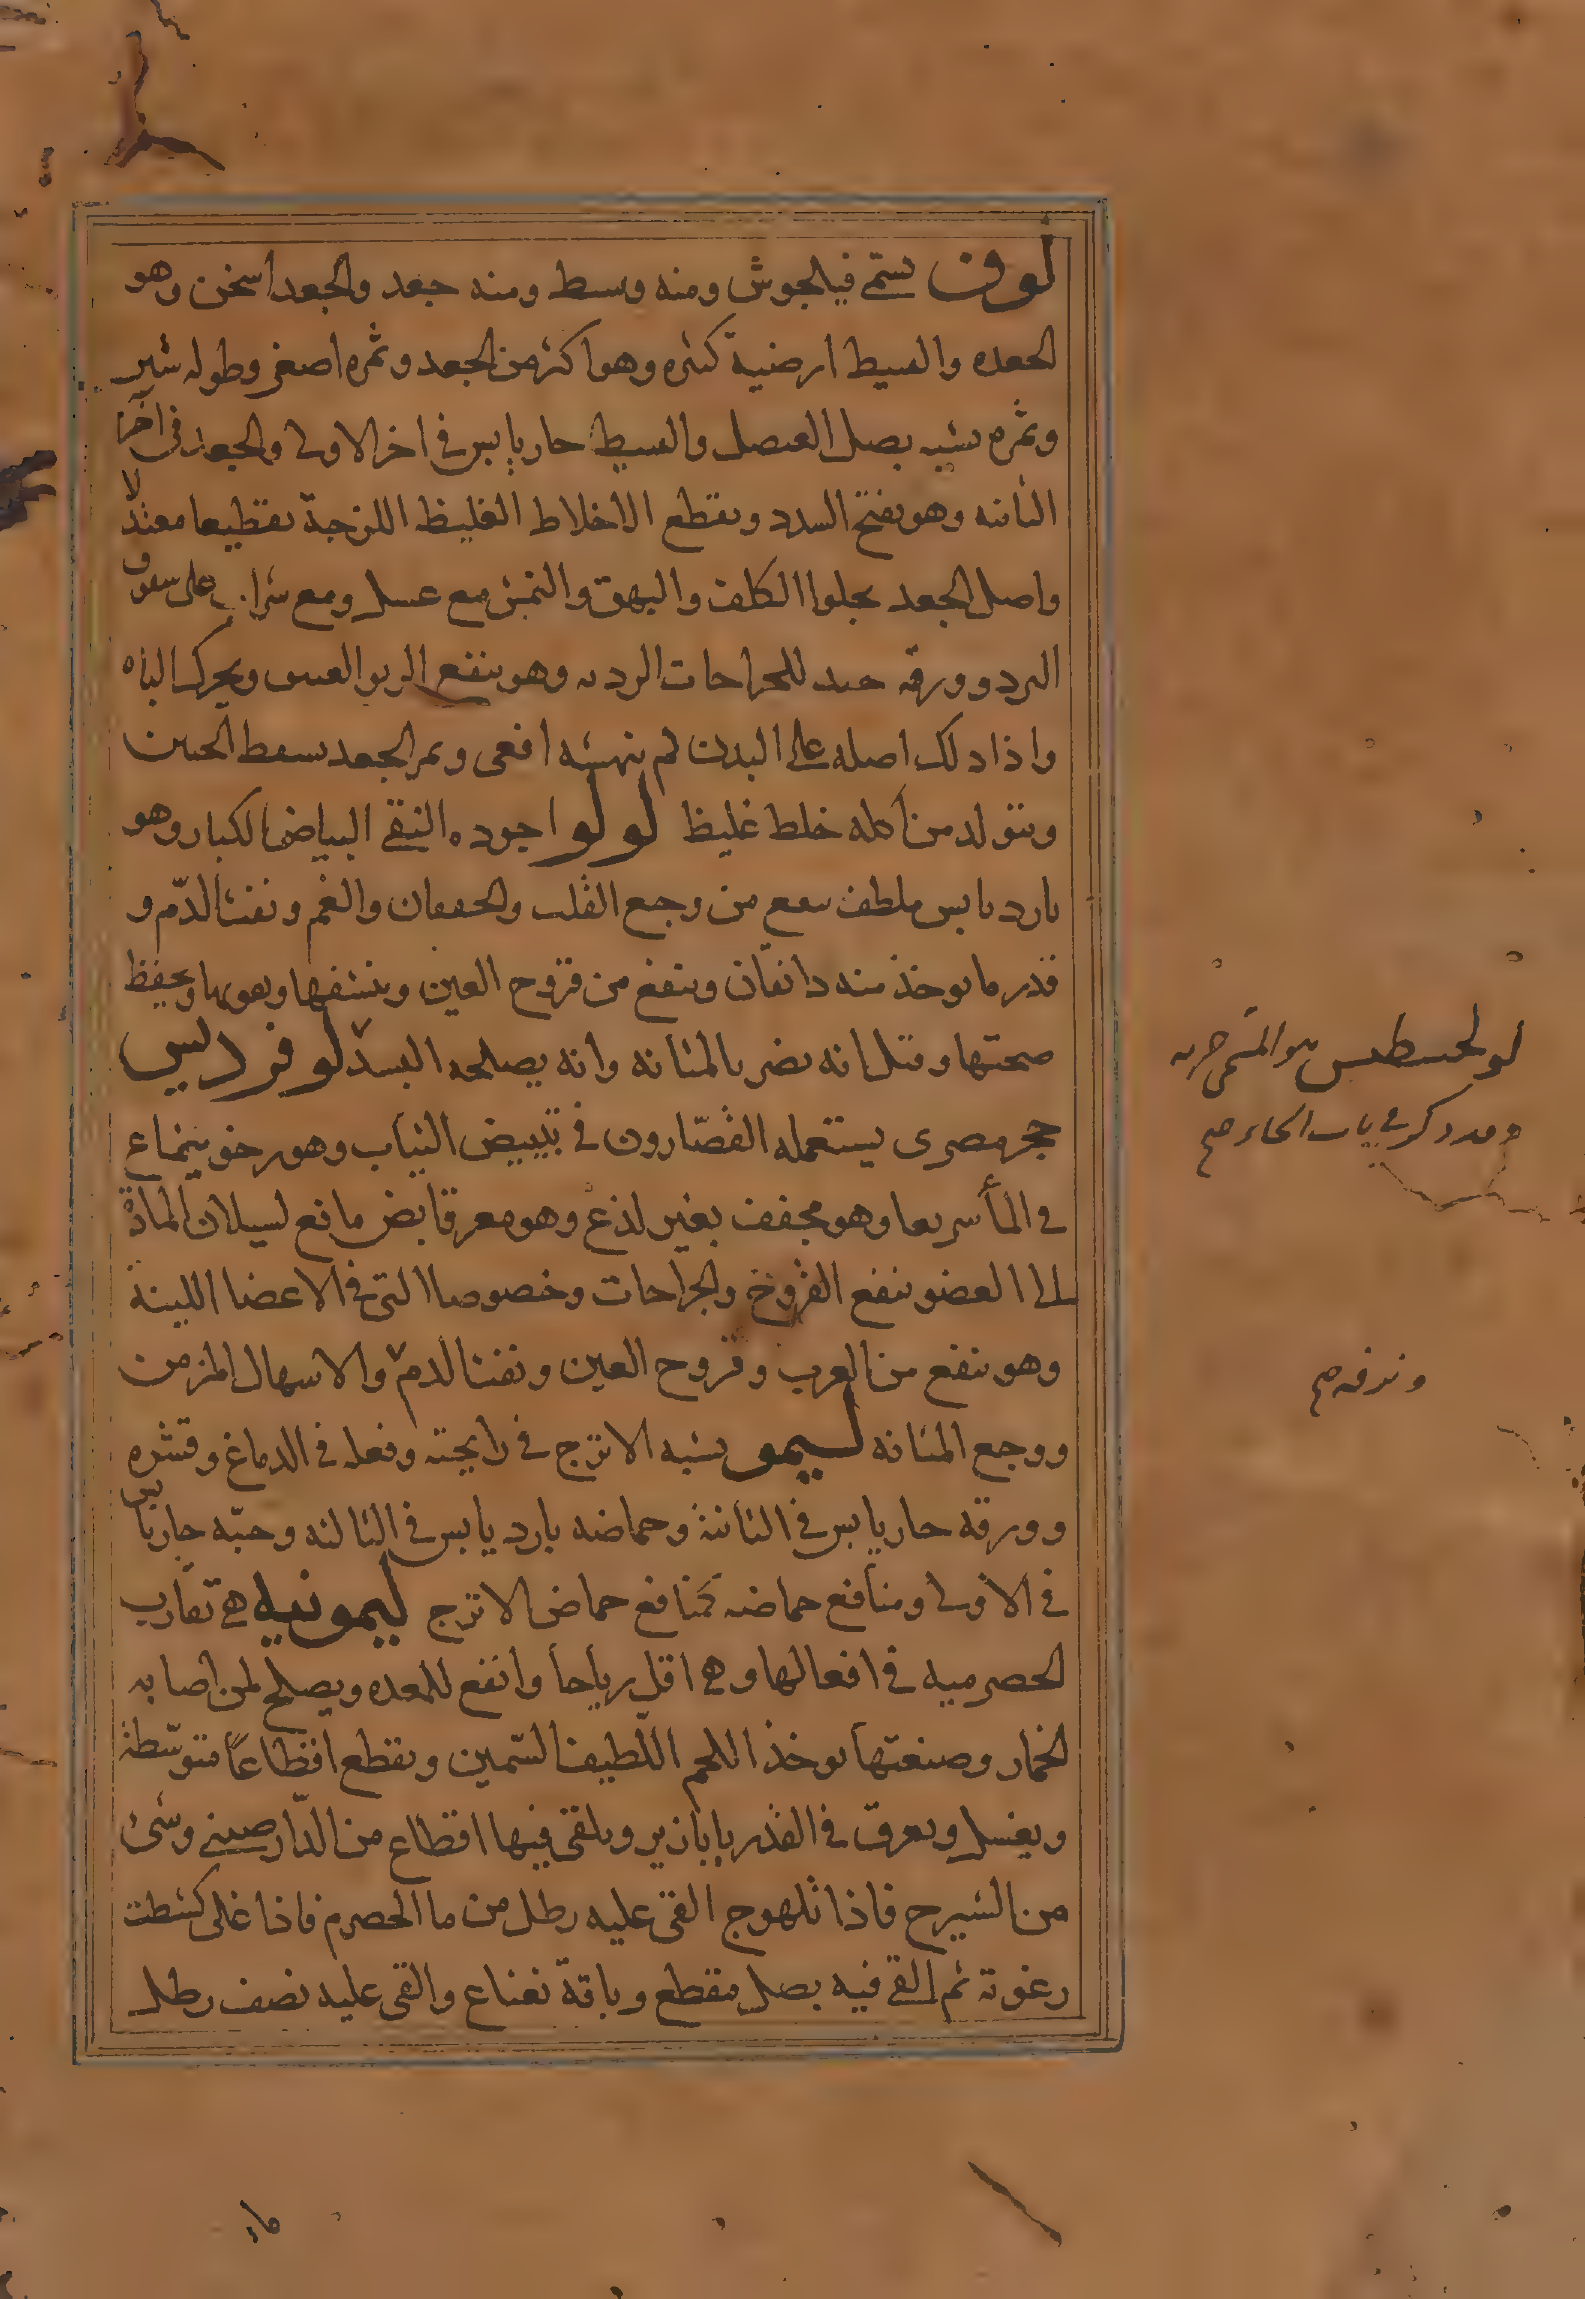 لوف يسمى فيلجوش ومنه وسبط ومنه جعد والجعد اسخن وهو
الجعده والسبط ارضية كثيره وهو اكثر من الجعد وثمره اصغر وطوله شبر
وثمره يشبه بصل العنصل والسبط حار يابس في اخر الاولى والجعد في آخر
الثانيه وهو يفتح السدد ويقطع الاخلاط الغليظه اللزجة تقطيعا معتدلا
واصل الجعد يجلوا الكلف والبهق والنمش مع عسل ومع شراب على شقوق
البرد وورقه جيد للجراحات الرديه وهو ينفع الربو العتيق ويحرك الباه
واذا دلك اصله على البدن لم ينهشه افعى وثمر الجعد يسقط الجنين
ويتولد من أكله خلط غليظ لولو اجوده النقى البياض الكبار وهو
بارد يابس ملطف ينفع من وجع القلب والخفقان والغم ونفث الدّم و
قدر ما يوخذ منه دانقان وينفع من قروح العين وينشفها ويقويها ويحفظ
صحتها وقيل انه يضر بالمثانه وانه يصلحه البسد لوفرديس
حجر مصرى يستعمله القصّارون في تبييض الثياب وهو رخو ينماع
في المأ سريعا وهو مجفف بغير لذع وهو مغر قابض مانع لسيلان المادة
الى العضو ينفع القروح والجراحات وخصوصا التي في الاعضا اللينة
وهو ينفع من الغرب وقروح العين ونفث الدم والاسهال المزمن
ووجع المثانه ليمو يشبه الاترج في رايحته وفعله في الدماغ وقشره
وورقه حار يابس في الثانية وحماضه بارد يابس في الثالثه وحبّه حار يابس
في الاولى ومنافع حماضه كمنافع حماض الاترج ليمونيه هي تقارب
الحصرميه في افعالها وهي اقل رياحاً وانفع للمعده ويصلح لمن اصابه
الخمار وصنعتها يوخذ اللحم اللّطيف السّمين ويقطع اقطاعاً متوسّطة
ويغسل ويعرق في القدر بابازير ويلقى فيها اقطاع من الدّارصيني وشئ
من الشيرج فاذا تلهوج القى عليه رطل من ما الحصرم فاذا غلى كشطت
رغوته ثم القى فيه بصل مقطع وباقة نعناع والقى عليه نصف رطل
لولحسطس هو المسمى
وقد ذكر في باب الحاء صح
صح
ماء